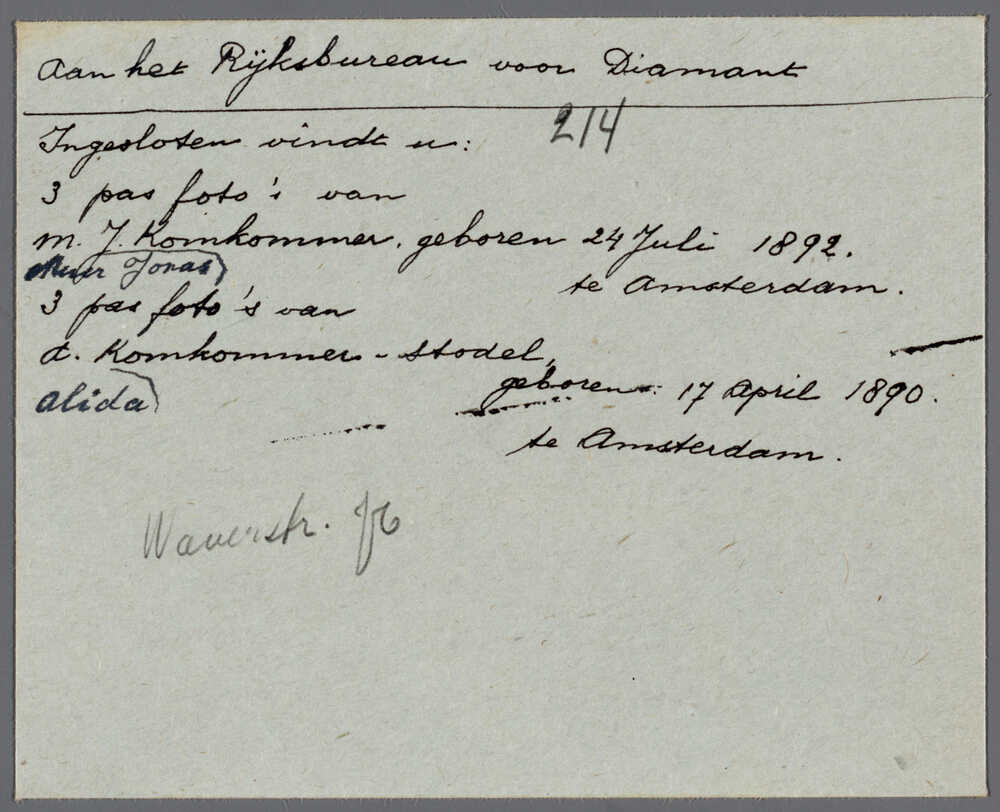 Aan het Rijksbureau voor Diamant
214
Ingesloten vindt u:
3 pas foto's van
M. J. Komkommer. geboren 24 Juli 1892.
Jonas)
te Amsterdam.
3 pas foto's van
A. Komkommer - Stodel,
geboren: 17 April 1890.
Alida)
te Amsterdam.
Waverstr.